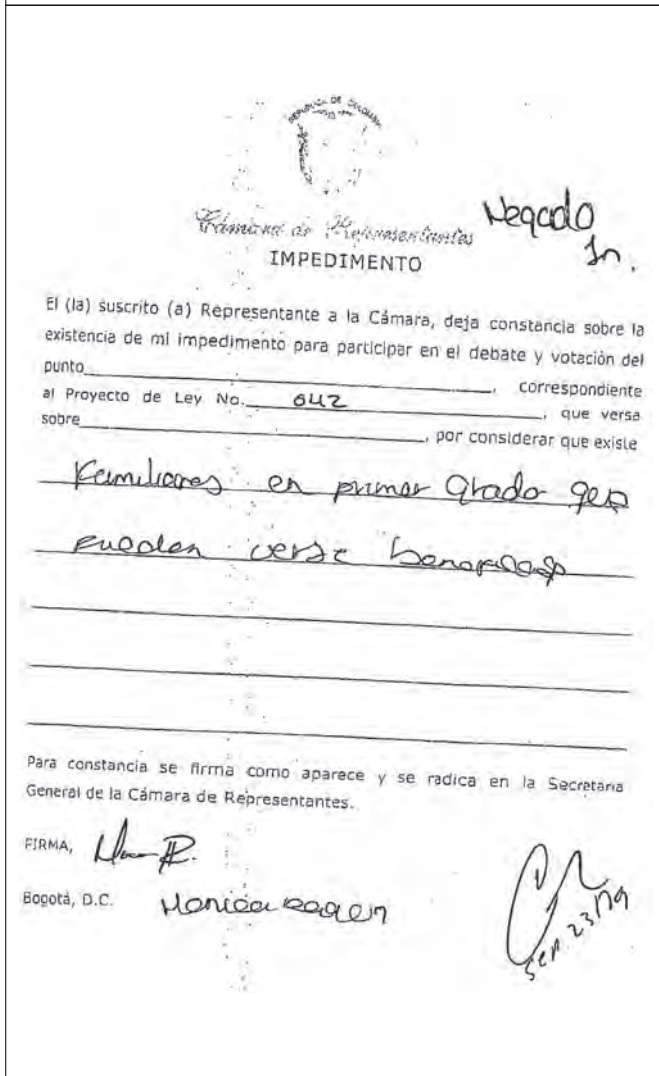 REPUBLICA DE COLOMBIA
Cámara de Representantes
Negado
IMPEDIMENTO
El (la) suscrito (a) Representante a la Cámara, deja constancia sobre la
existencia de mi impedimento para participar en el debate y votación del
punto____, correspondiente
al Proyecto de Ley No. 042, que versa
sobre____, por considerar que existe
Familiares en primer grado que
pueden verse
Para constancia se firma como aparece y se radica en la Secretaria
General de la Cámara de Representantes.
FIRMA,
Bogotá, D.C. Monica
Sep 23/19